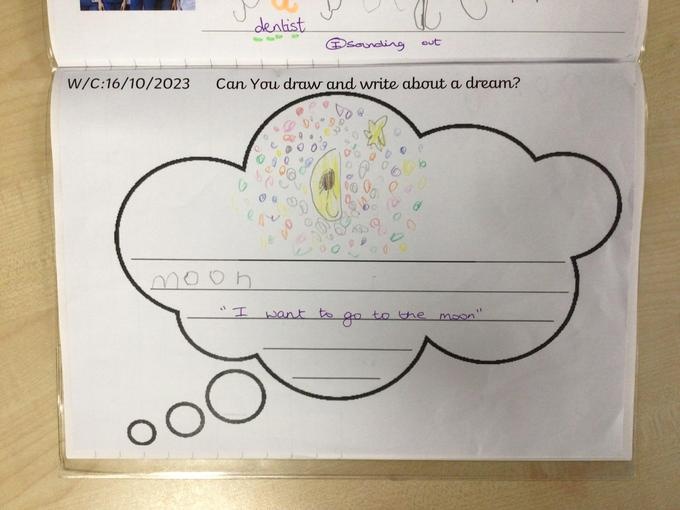 dentist
I sounding out
W/C:16/10/2023 Can You draw and write about a dream?
moon
"I want to go to the moon"